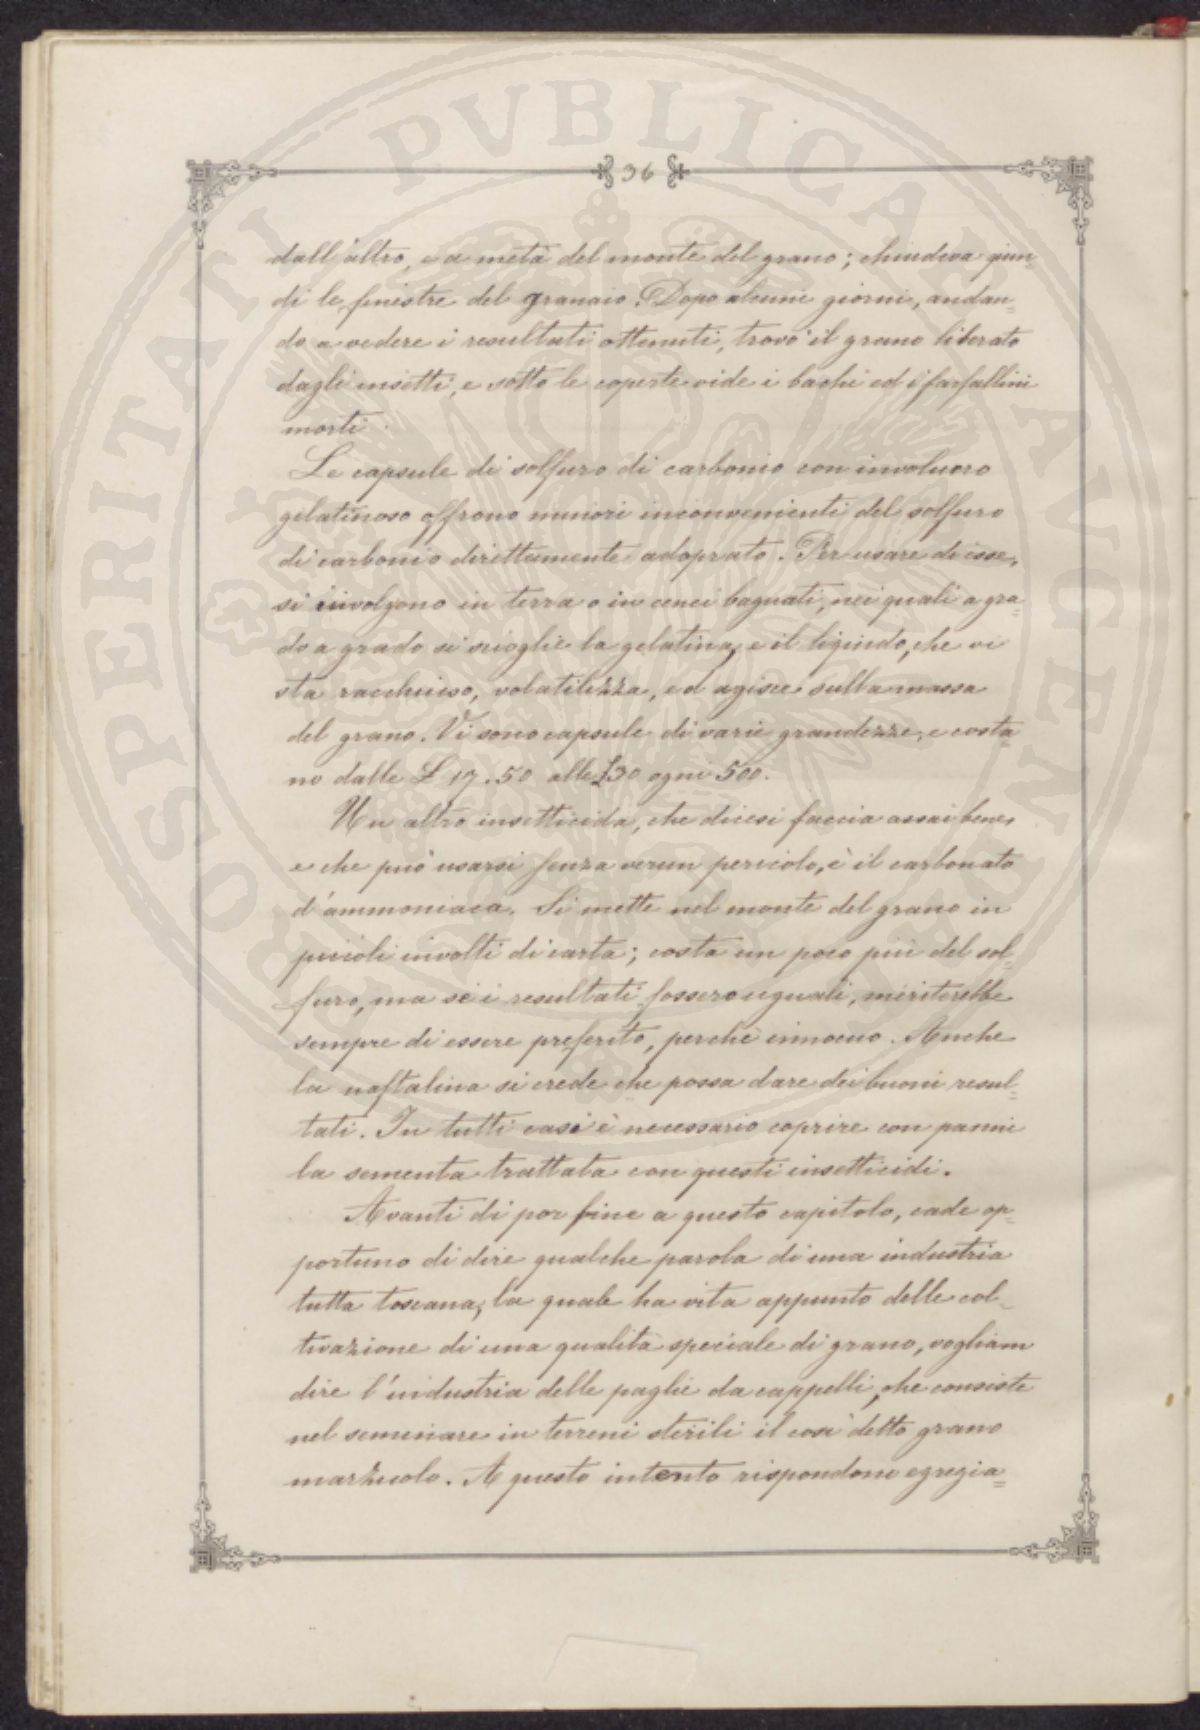 36
dall'altro, e a metà del monte del grano; chiudeva quin-
di le finestre del granaio. Dopo alcuni giorni, andan=
do a vedere i resultati ottenuti, trovò il grano liberato
dagli insetti, e sotto le coperte vide i bachi ed i farfallini
morti.
Le capsule di solfuro di carbonio con involucro
gelatinoso offrono minori inconvenienti del solfuro
di carbonio direttamente adoprato. Per usare di esse,
si involgono in terra o in cenci bagnati, nei quali a gra=
do a grado si scioglie la gelatina, e il liquido, che vi
sta racchiuso, volatilizza, ed agisce sulla massa
del grano. Vi sono capsule di varie grandezze, e costa=
no dalle £ 17.50 alle £30 ogni 500.
Un altro insetticida, che dicesi faccia assai bene,
e che può usarsi senza verun pericolo, è il carbonato
d'ammoniaca. Si mette nel monte del grano in
piccioli involti di carta; costa un poco più del sol=
furo, ma se i resultati fossero uguali, meriterebbe
sempre di essere preferito, perchè innocuo. Anche
la naftalina si crede che possa dare dei buoni resul=
tati. In tutti casi è necessario coprire con panni
la sementa trattata con questi insetticidi.
Avanti di por fine a questo capitolo, cade op=
portuno di dire qualche parola di una industria
tutta toscana, la quale ha vita appunto delle col=
tivazione di una qualità speciale di grano, vogliam
dire l'industria delle paglie da cappelli, che consiste
nel seminare in terreni sterili il così detto grano
marzuolo. A questo intento rispondono egregia=
PROSPERITATI PVBLICAE AVGENDAE